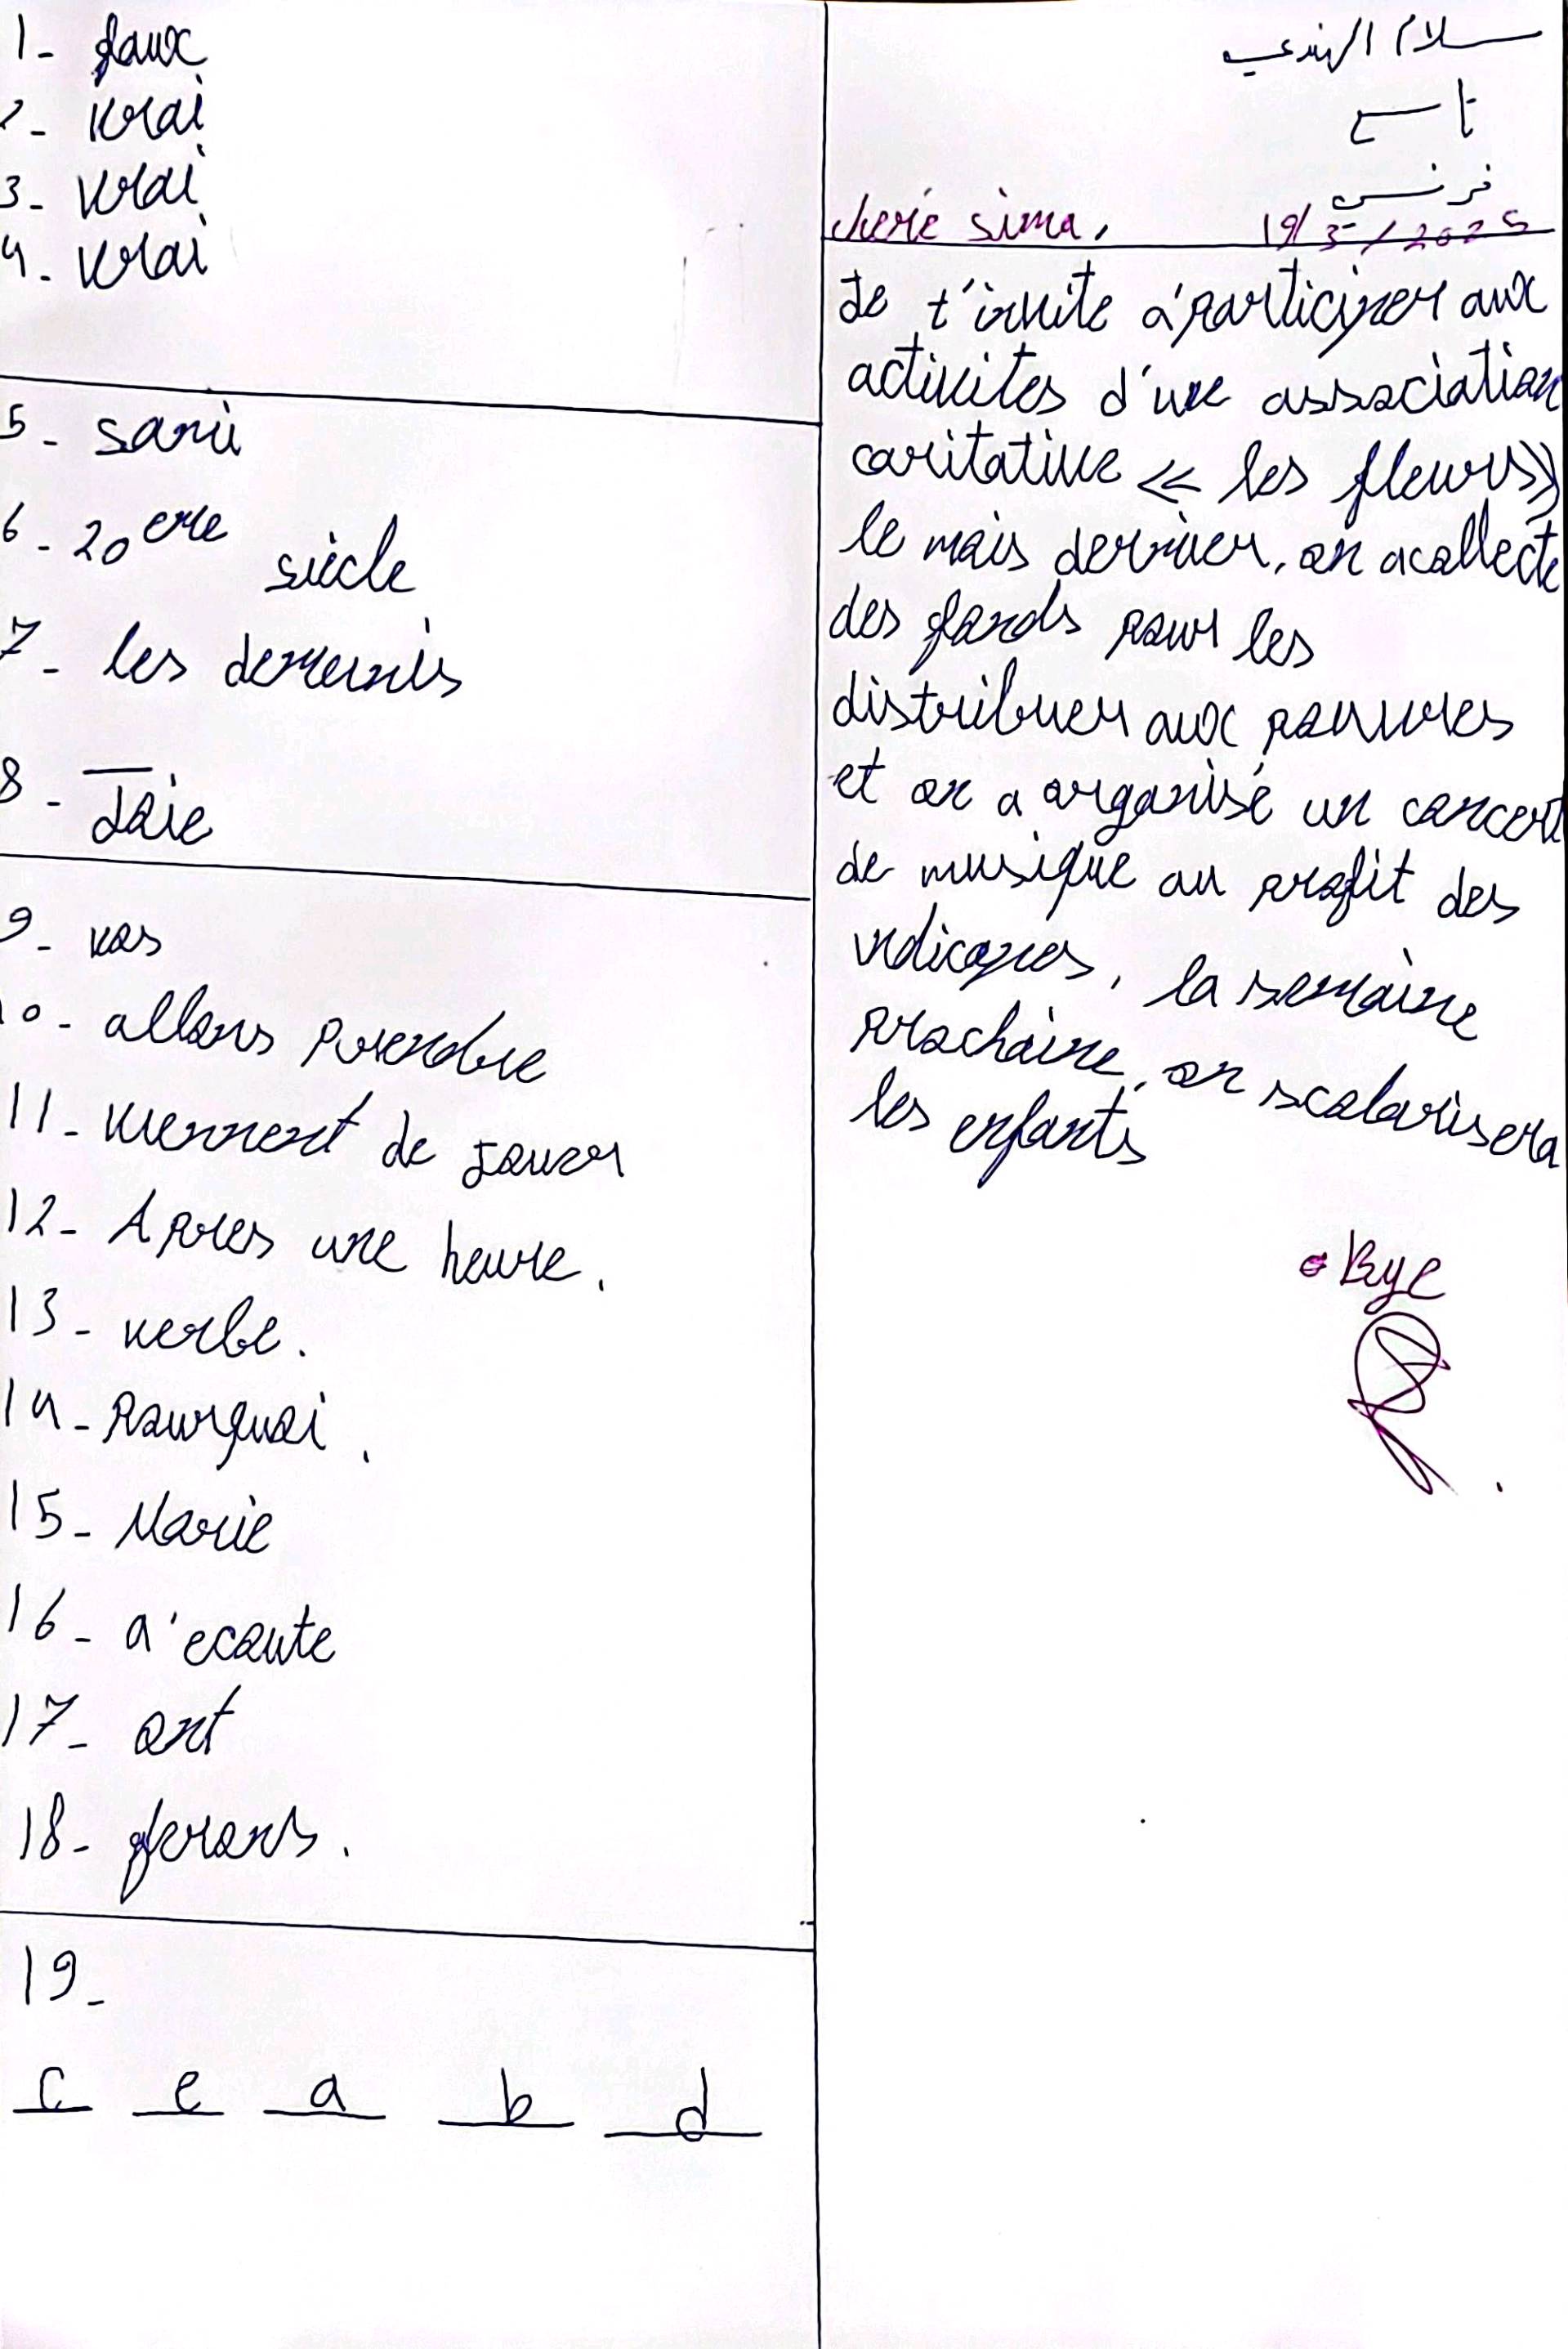 1- faux
2- vrai
3- vrai
4- vrai
5- sani
6- 20 ere siècle
7- les
8- Joie
9- vas
10- allons prendre
11- viennent de jouer
12- Apres une heure.
13- verbe.
14- Pourquoi.
15- Marie
16- a ecoute
17- ont
18- ferons.
19-
c e a b d
سلام الهندي
تاسع
فرنسي
cherie sima, 19/5/2025
Je t'invite a participer aux
activites d'une association
caritative << les fleurs>>
le mois dernier, on a collecte
des fonds pour les
distribuer aux pauvres
et on a organisé un concert
de musique au profit des
la semaine
prochaine, on scolarisera
les enfants
Bye